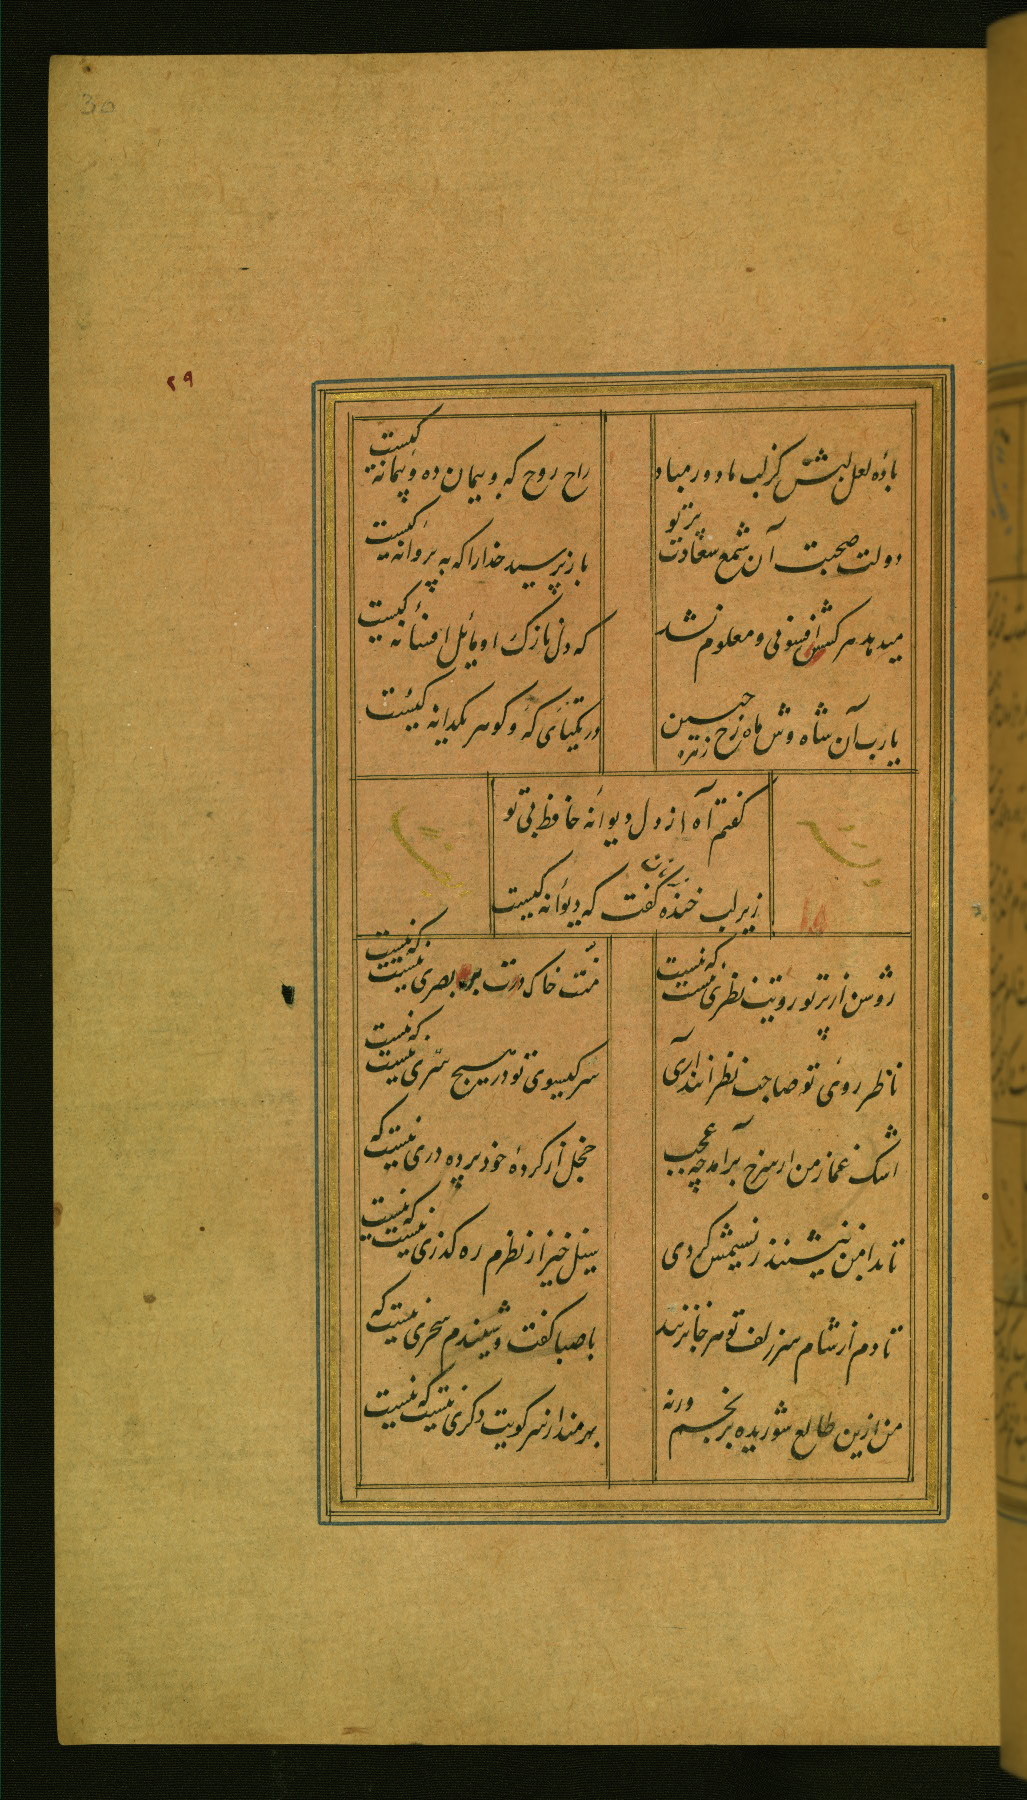 30
۲۹
بادهٔ لعل لبش کز لب ما دور مباد
راح روح که و پیمان ده و پیمانه کیست
دولت صحبت آن شمع سعادت پرتو
بازپرسید خدارا که به پروانه کیست
میدهد هر کسش افسونی و معلوم نشد
که دل نازک او مائل افسانه کیست
یارب آن شاه وش ماه رخ زهره جبین
در یکتای که و گوهر یکدانه کیست
گفتم آه از دل دیوانه حافظ بی تو
زیر لب خنده زنان گفت که دیوانه کیست
۵۱
روشن از پرتو رویت نظری نیست که نیست
منت خاک درت بر بصری نیست که نیست
ناظر روی تو صاحب نظرانند آری
سر گیسوی تو در هیچ سری نیست که نیست
اشک غماز من ار سرخ برآمد چه عجب
خجل از کردهٔ خود پرده دری نیست که
تا بدامن ننشیند ز نسیمش گردی
سیل خیز از نظرم ره گذری نیست که نیست
تا دم از شام سر زلف تو هر جا نزنند
با صبا گفت و شنیدم سحری نیست که
من ازین طالع شوریده برنجم ورنه
بهرمند از سر کویت دگری نیست که نیست